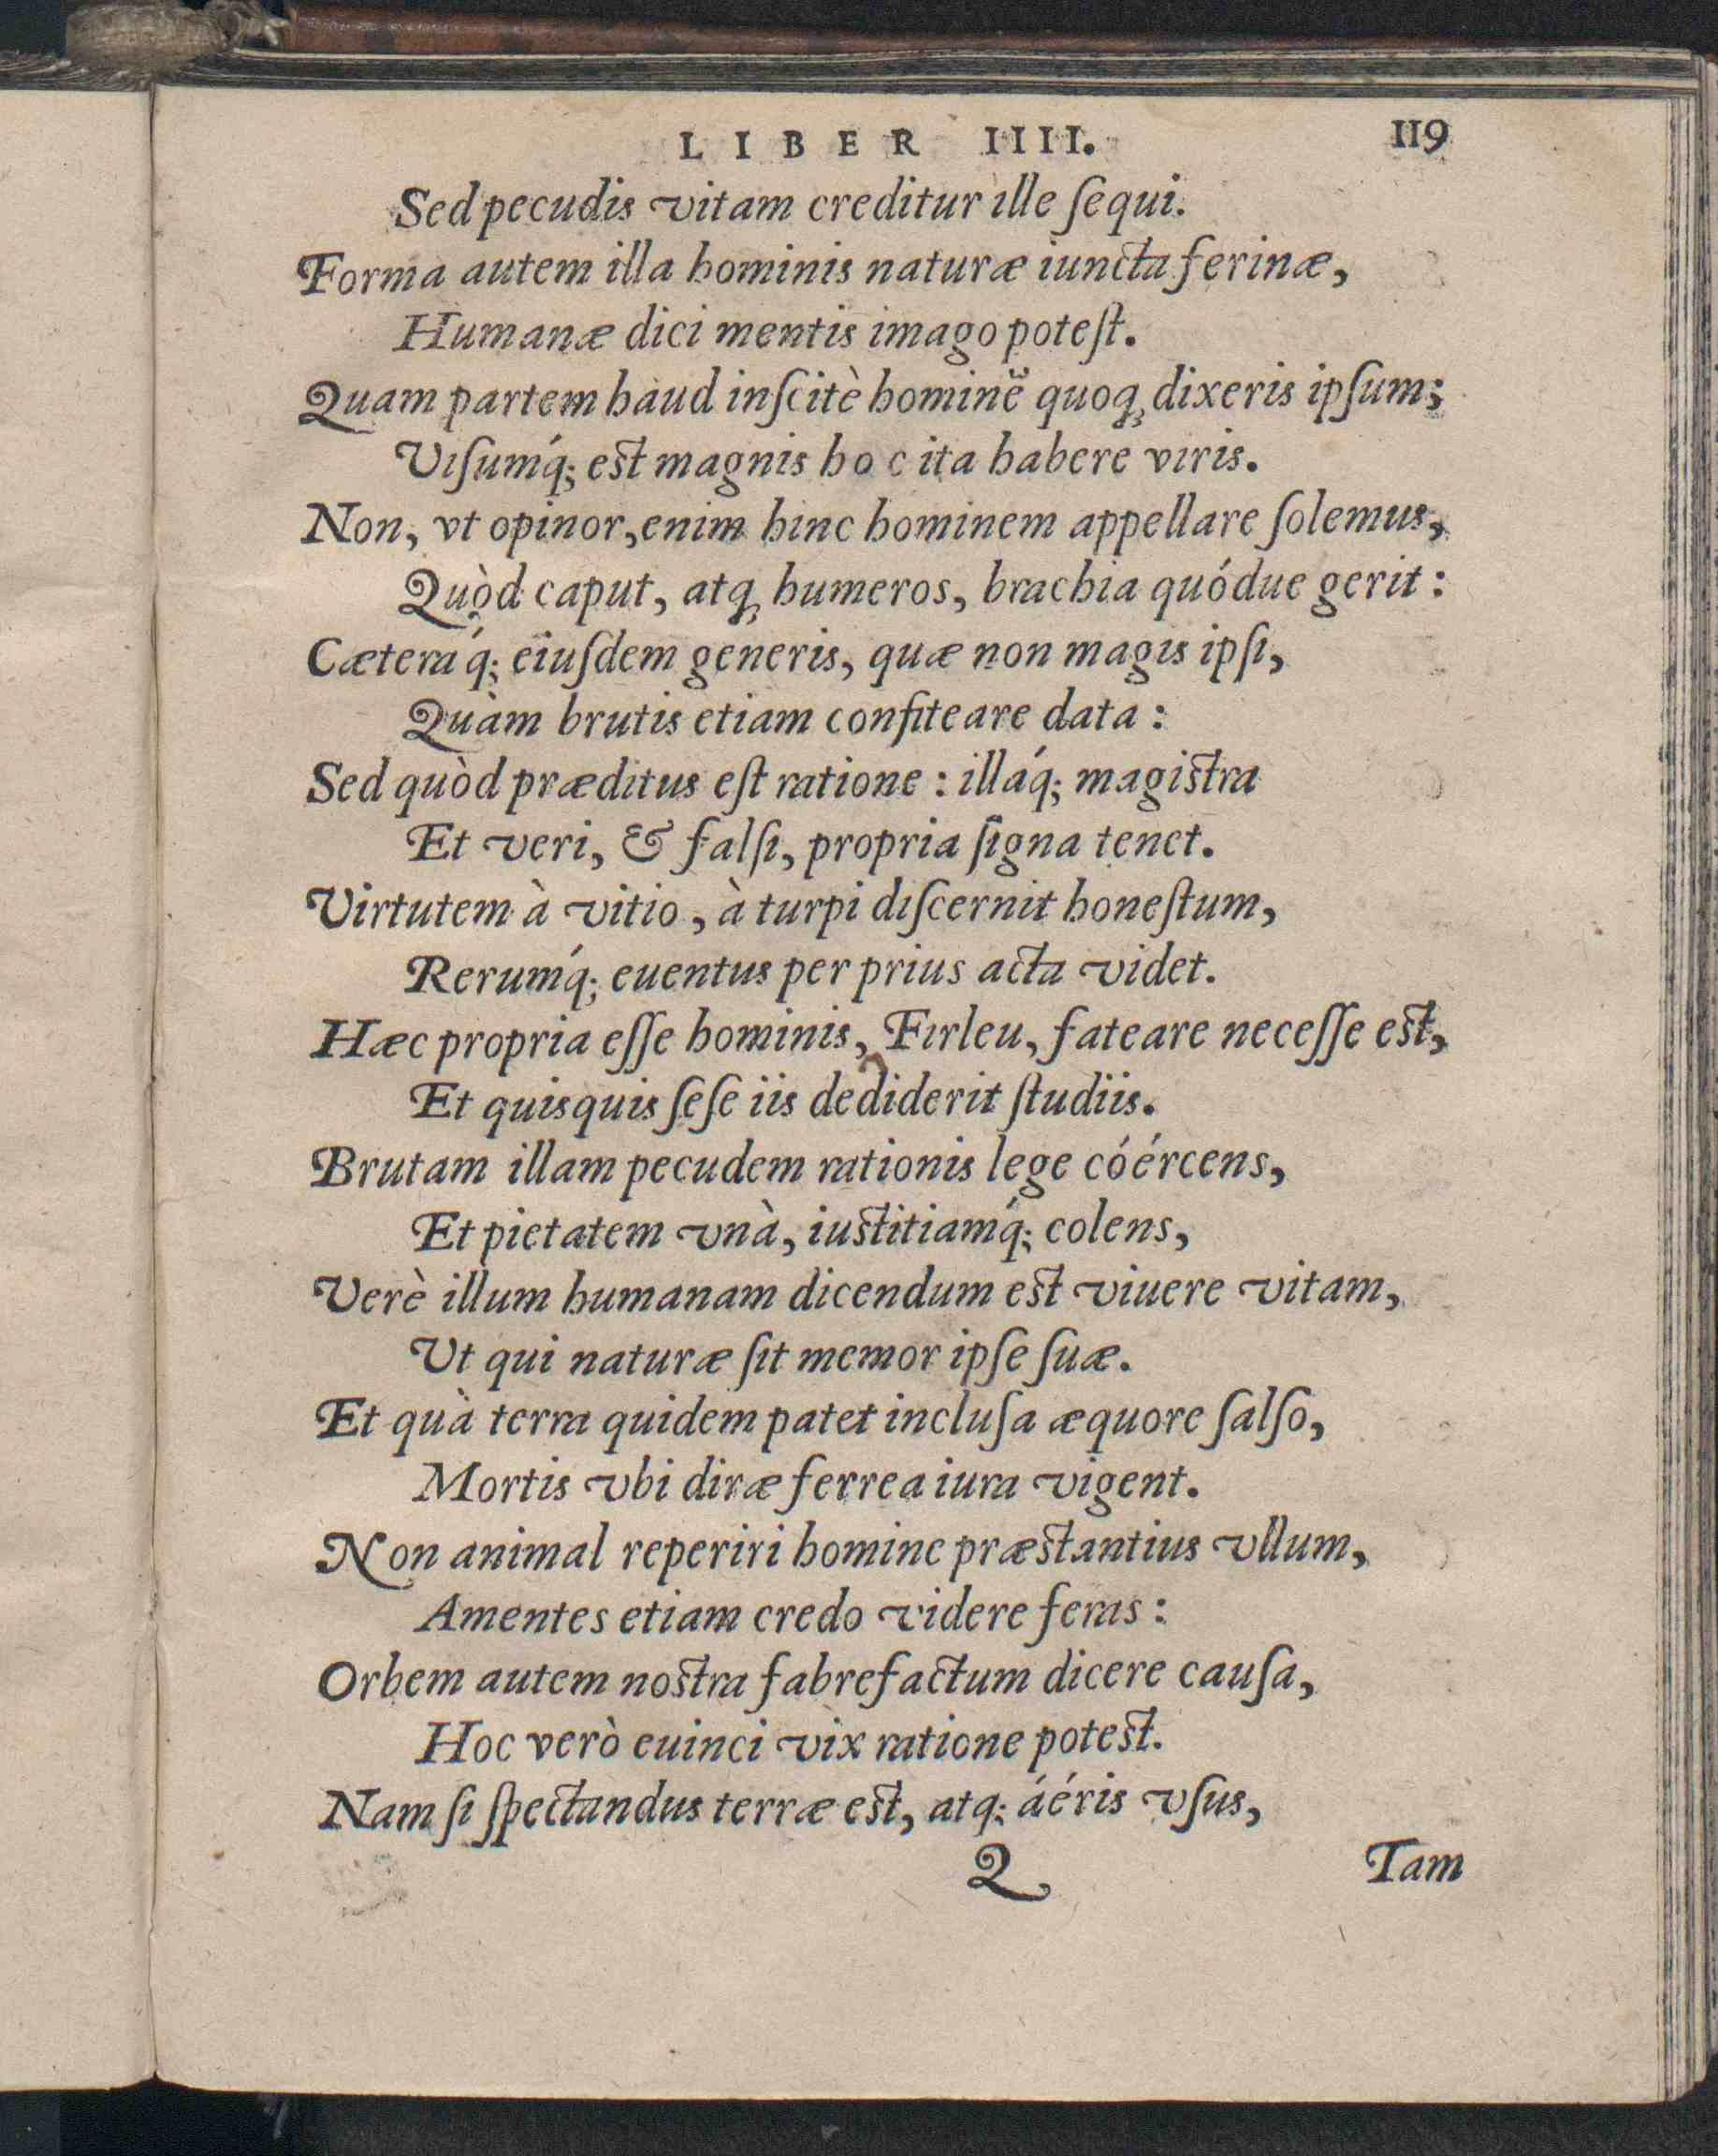 LIBER IIII. 119
Sed pecudis vitam creditur ille ſequi.
Forma autem illa hominis naturæ iuncta ferinæ,
Humanæ dici mentis imago poteſt.
Quam partem haud inſcitè hominē quoq; dixeris ipſum;
Viſumq́; est magnis hoc ita habere viris.
Non, vt opinor, enim hinc hominem appellare ſolemus,
Quòd caput, atq; humeros, brachia quódue gerit:
Cæteraq́; eiuſdem generis, quæ non magis ipſi,
Quàm brutis etiam confiteare data:
Sed quòd præditus eſt ratione: illáq; magistra
Et veri, & falſi, propria ſigna tenet.
Virtutem à vitio, à turpi diſcernit honeſtum,
Rerumq́; euentus per prius acta videt.
Hæc propria eſſe hominis, Firleu, fateare neceſſe est,
Et quisquis ſeſe iis dediderit ſtudiis.
Brutam illam pecudem rationis lege cóércens,
Et pietatem vnà, iustitiamq́; colens,
Verè illum humanam dicendum est viuere vitam,
Vt qui naturæ ſit memor ipſe ſuæ.
Et quà terra quidem patet incluſa æquore ſalſo,
Mortis vbi diræ ferrea iura vigent.
Non animal reperiri homine præstantius vllum,
Amentes etiam credo videre feras:
Orbem autem nostra fabrefactum dicere cauſa,
Hoc verò euinci vix ratione potest.
Nam ſi ſpectandus terræ est, atq; áéris vſus,
Q Tam